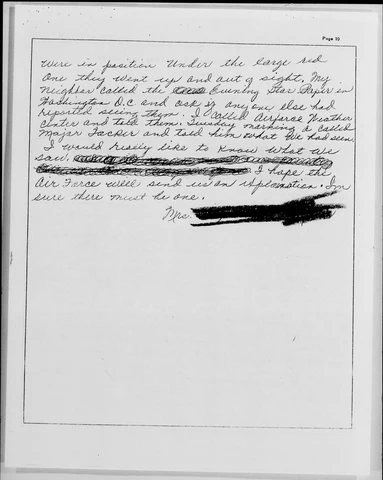 Page 10
were in position under the large red
one they went up and out of sight. My
Neighbor called the Evening Star Paper in
Washington D.C and ask if anyone else had
reported seeing them. I called Airforce Weather
Center and told them. Tuesday morning I called
Major Tacker and told him what We had seen
I would really like to know what We
saw. I hope the
Air Force will send us an explomation. I'm
sure there must be one.
Mrs.